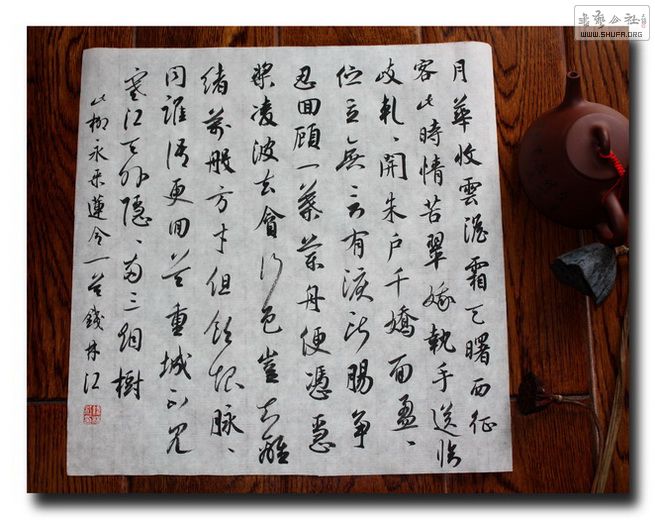 月華收雲澹霜天曙西征
客此時情苦翠娥執手送临
歧軋、開朱户千嬌面盈、
伫立無言有淚断腸争
忍回顧一葉蘭舟便憑急
槳凌波去貪行色豈知離
緒萬般方寸但飲恨脉、
同誰語更回首重城不見
寒江天外隱、兩三烟樹
此柳永采蓮令一首錢林江
書藝公社
WWW.SHUFA.ORG